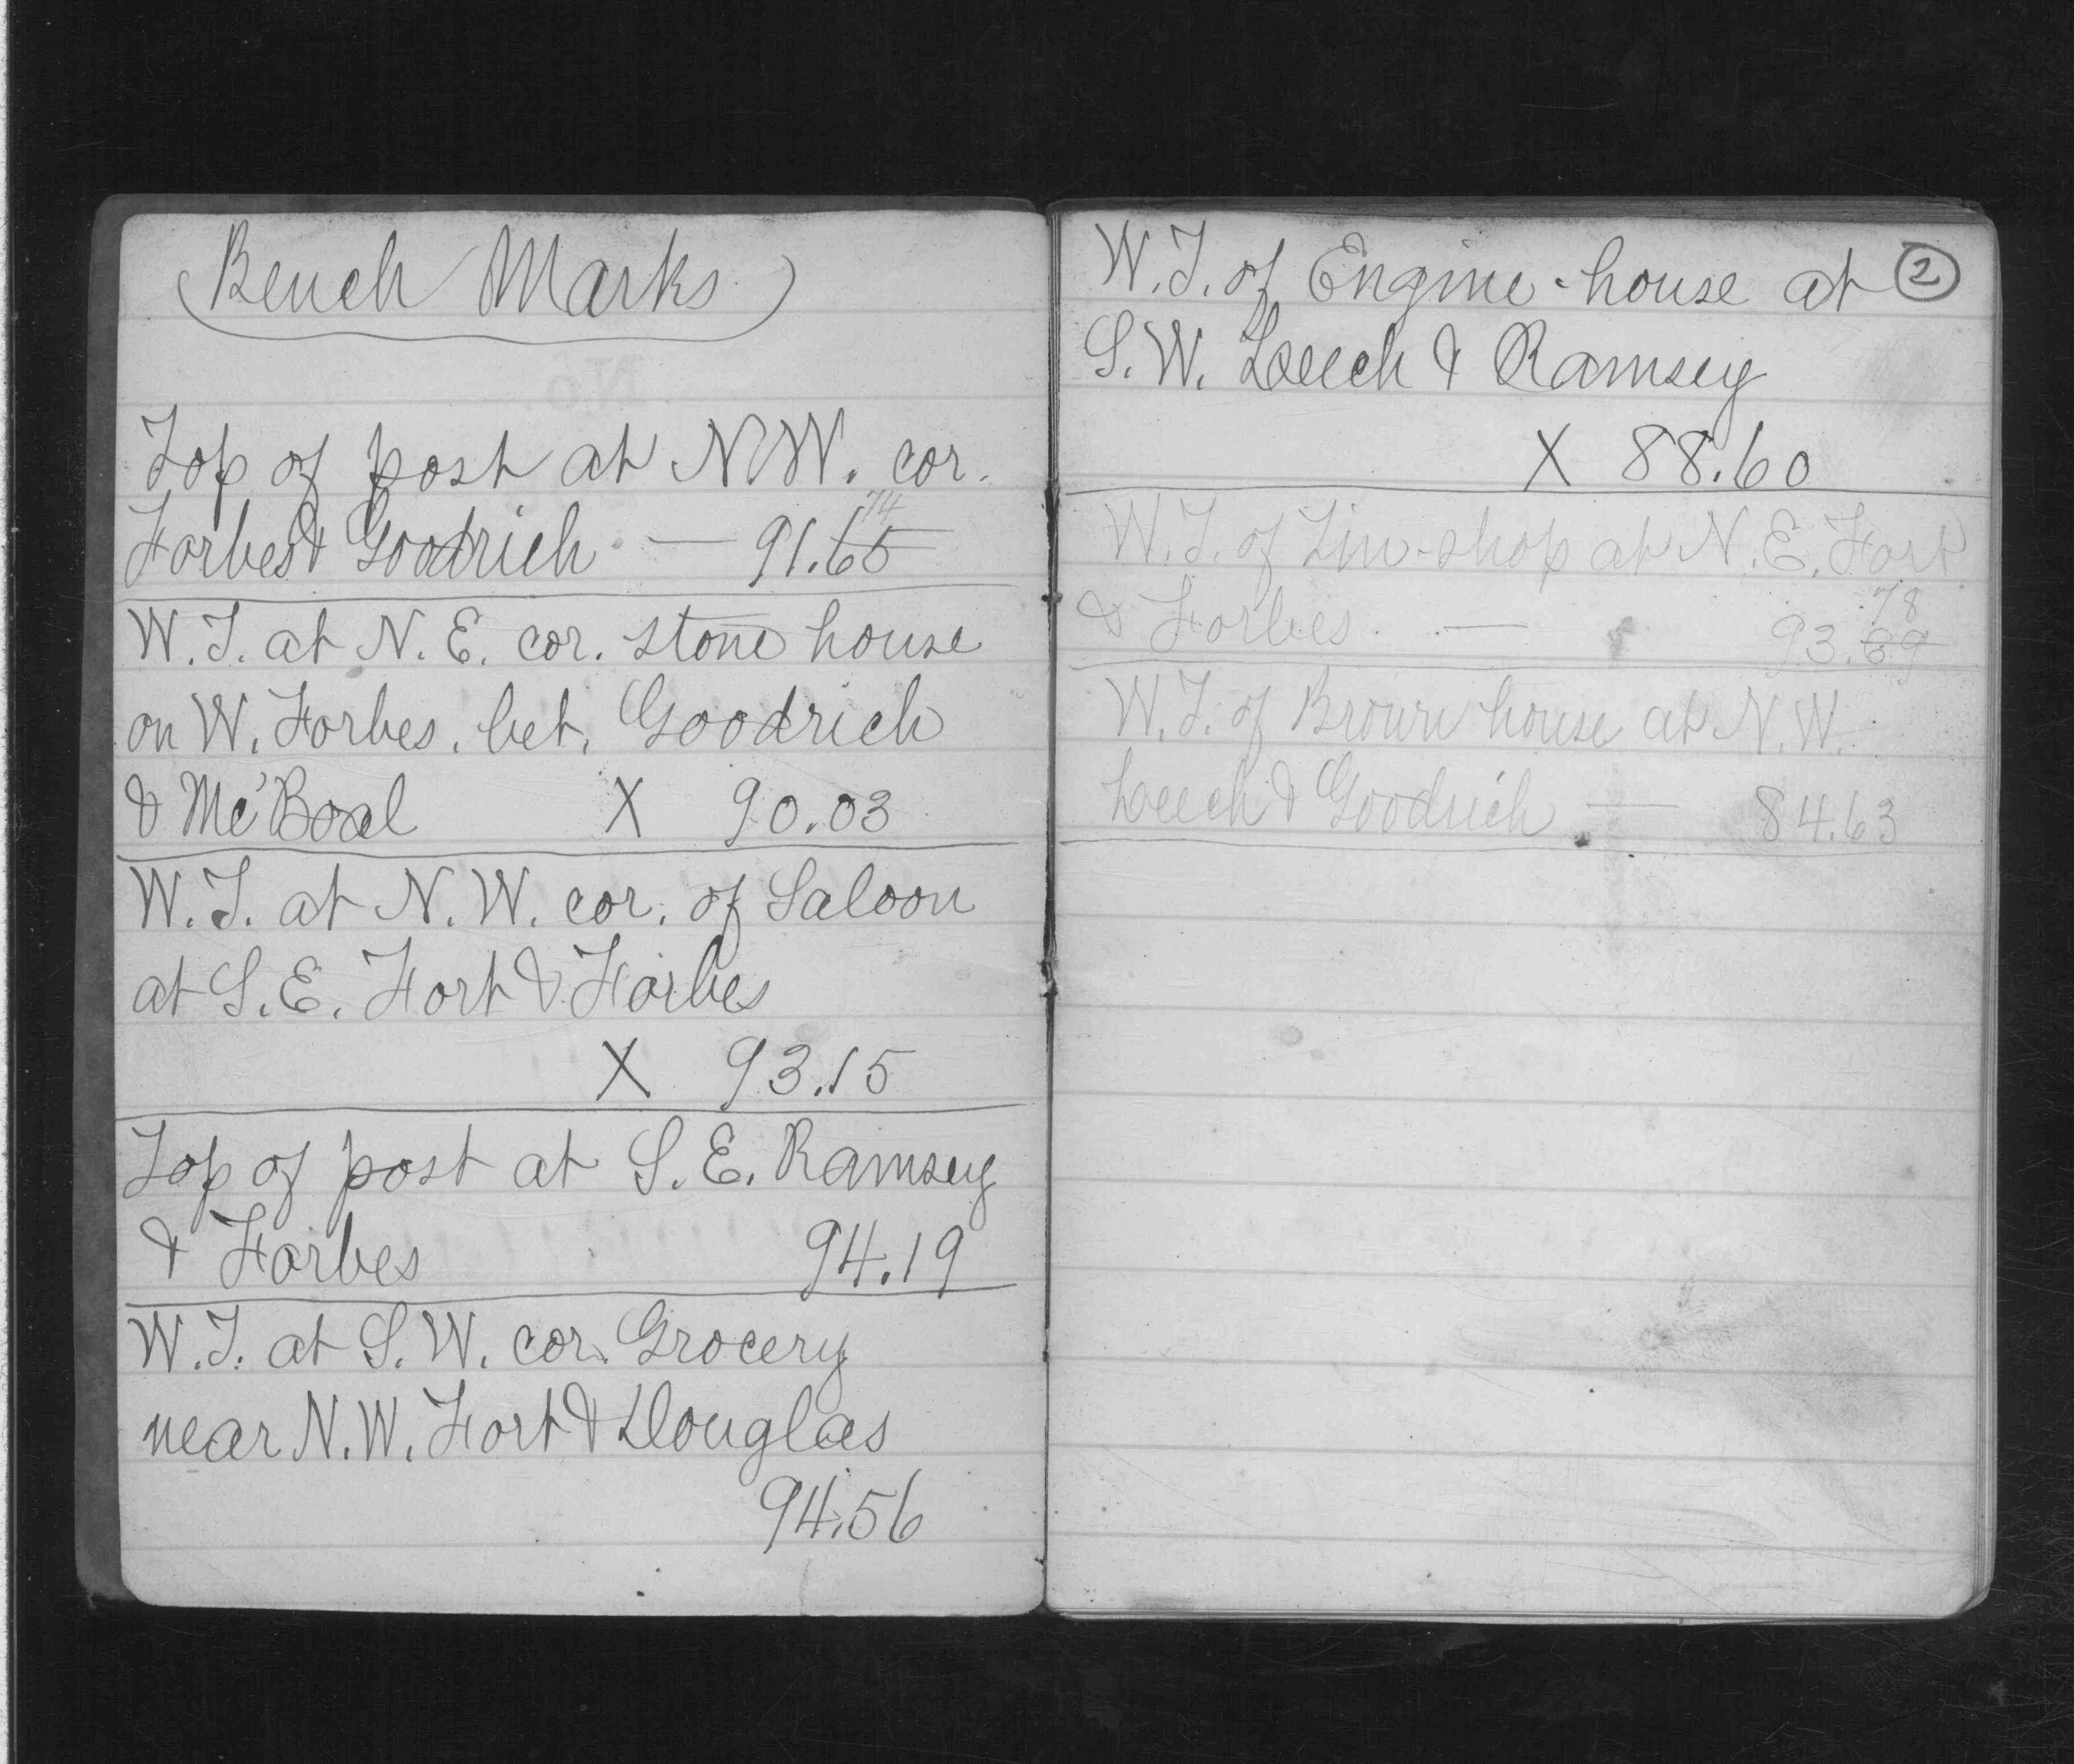 Bench Marks
Top of post at N.W. cor.
74
Forbes & Goodrich — 91.65
W.T. at N.E. cor. stone house
on W. Forbes, bet. Goodrich
& Mc'Boal X 90.03
W.T. at N.W. cor. of Saloon
at S.E. Fort & Forbes
X 93.15
Top of post at S.E. Ramsey
& Forbes 94.19
W.T. at S.W. cor. Grocery
near N.W. Fort & Douglas
94.56
W.T. of Engine-house at 2
S.W. Leech & Ramsey
X 88.60
W.T. of Tin-shop at N.E. Fort
78
& Forbes — 93.69
W.T. of Brown house at N.W.
Leech & Goodrich — 84.63